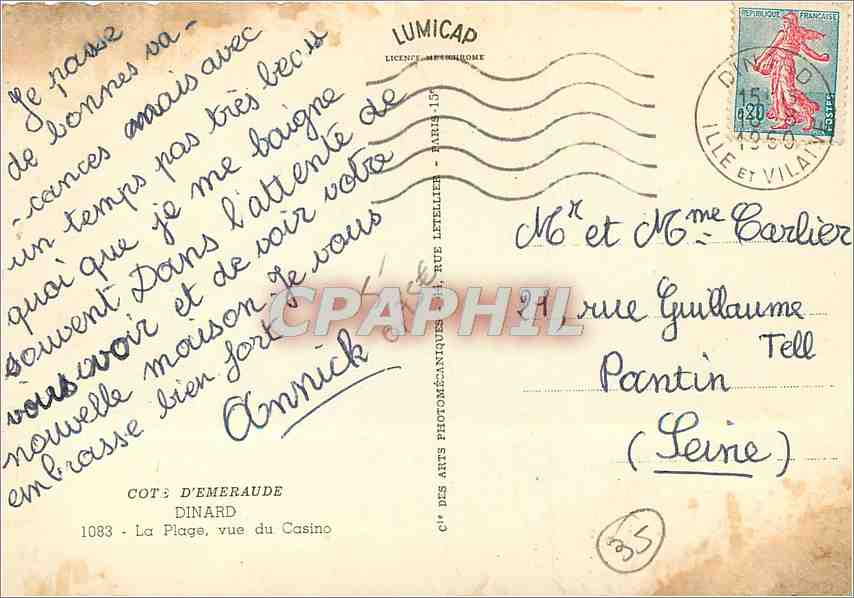 Je passe
de bonnes va-
-cances mais avec
un temps pas très beau
quoi que je me baigne
souvent Dans l'attente de
vous voir et de voir votre
nouvelle maison Je vous
embrasse bien fort
Annick
COTE D'EMERAUDE
DINARD
1083 - La Plage, vue du Casino
LUMICAP
LICENCE METOCHROME
Cie DES ARTS PHOTOMÉCANIQUES - 44, RUE LETELLIER - PARIS-15e
REPUBLIQUE FRANÇAISE
0,20
POSTES
DINARD
1960
ILLE ET VILAINE
Mr et Mme Carlier
21, rue Guillaume
Tell
Pantin
(Seine)
35
CPAPHIL